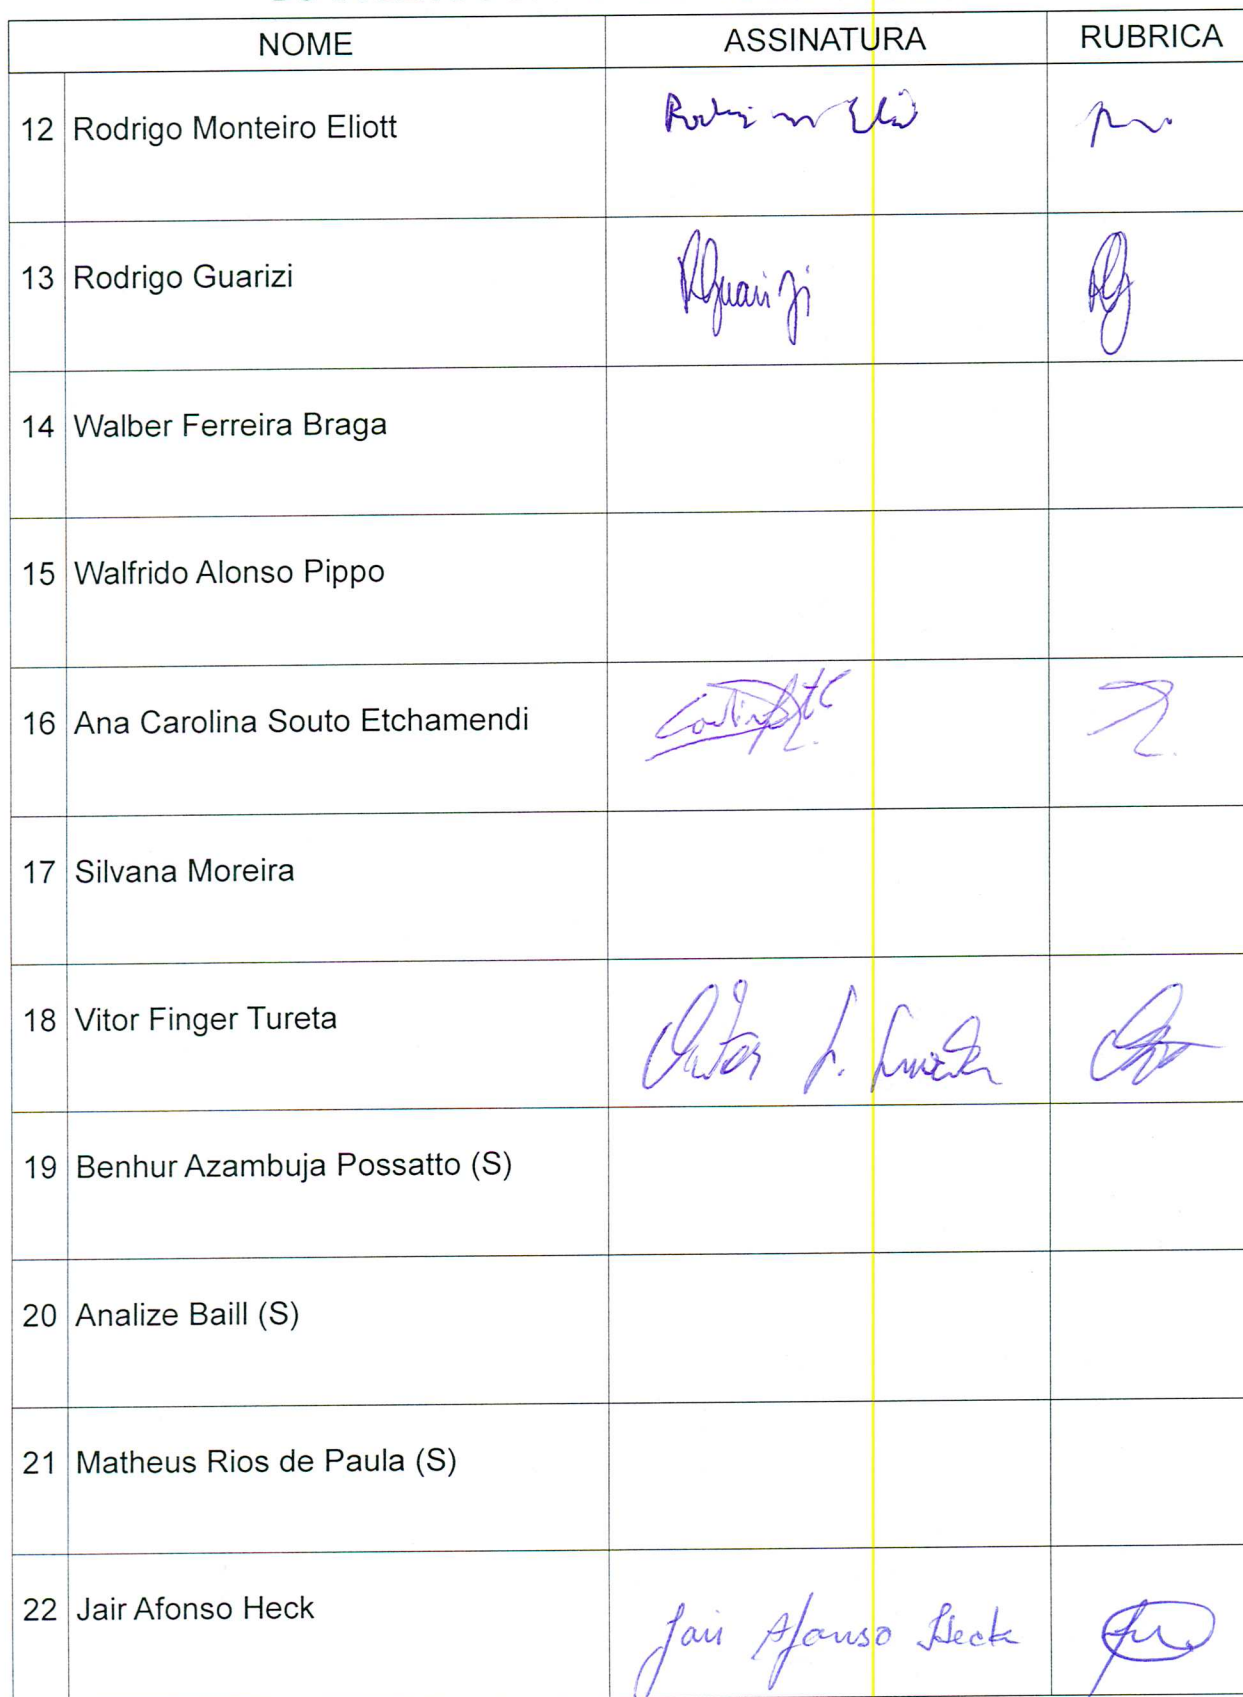 NOME ASSINATURA RUBRICA
12 Rodrigo Monteiro Eliott
13 Rodrigo Guarizi RGuarizi
14 Walber Ferreira Braga
15 Walfrido Alonso Pippo
16 Ana Carolina Souto Etchamendi
17 Silvana Moreira
18 Vitor Finger Tureta Vitor F.
19 Benhur Azambuja Possatto (S)
20 Analize Baill (S)
21 Matheus Rios de Paula (S)
22 Jair Afonso Heck Jair Afonso Heck